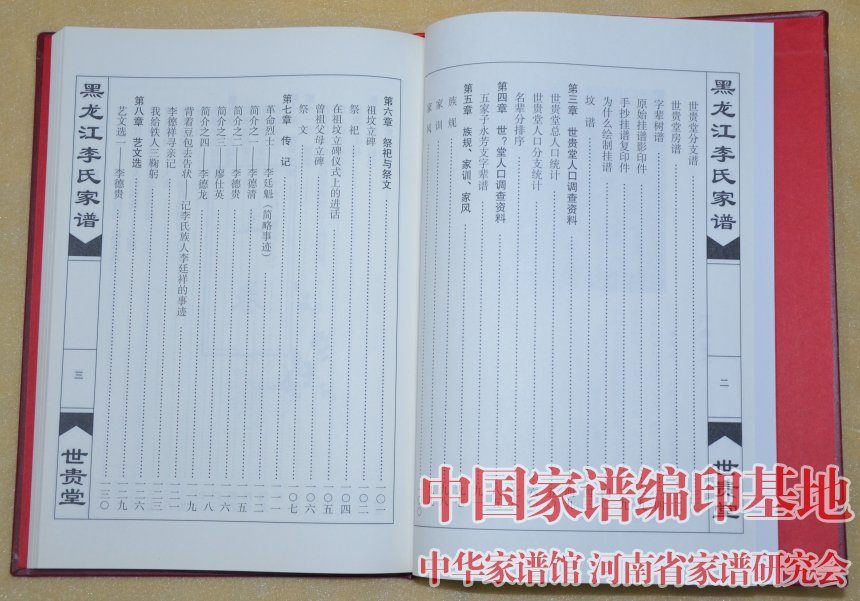 黑龙江李氏家谱
二
世贵堂
世贵堂分支谱
世贵堂房谱
字辈树谱
原始挂谱影印件
手抄挂谱复印件
为什么绘制挂谱
坟 谱
第三章 世贵堂人口调查资料
世贵堂总人口统计
世贵堂人口分支统计
名辈分排序
第四章 世?堂人口调查资料
五家子永芳支字辈谱
第五章 族规、家训、家风
族 规
家 训
家 风
第六章 祭祀与祭文 一〇一
祖坟立碑 一〇二
祭 祀 一〇四
在祖坟立碑仪式上的进话 一〇五
曾祖父母立碑 一〇六
祭 文 一〇七
第七章 传 记 一一一
革命烈士——李廷魁(简略事迹) 一一二
简介之一——李德清 一一五
简介之二——李德贵 一一六
简介之三——廖仕英 一一八
简介之四——李德龙 一一九
背着豆包去告状——记李氏族人李廷祥的事迹 一二一
李德祥寻亲记 一二三
我给铁人三鞠躬 一二六
第八章 艺文选 一二九
艺文选一 李德贵 一三〇
黑龙江李氏家谱
三
世贵堂
中国家谱编印基地
中华家谱馆 河南省家谱研究会